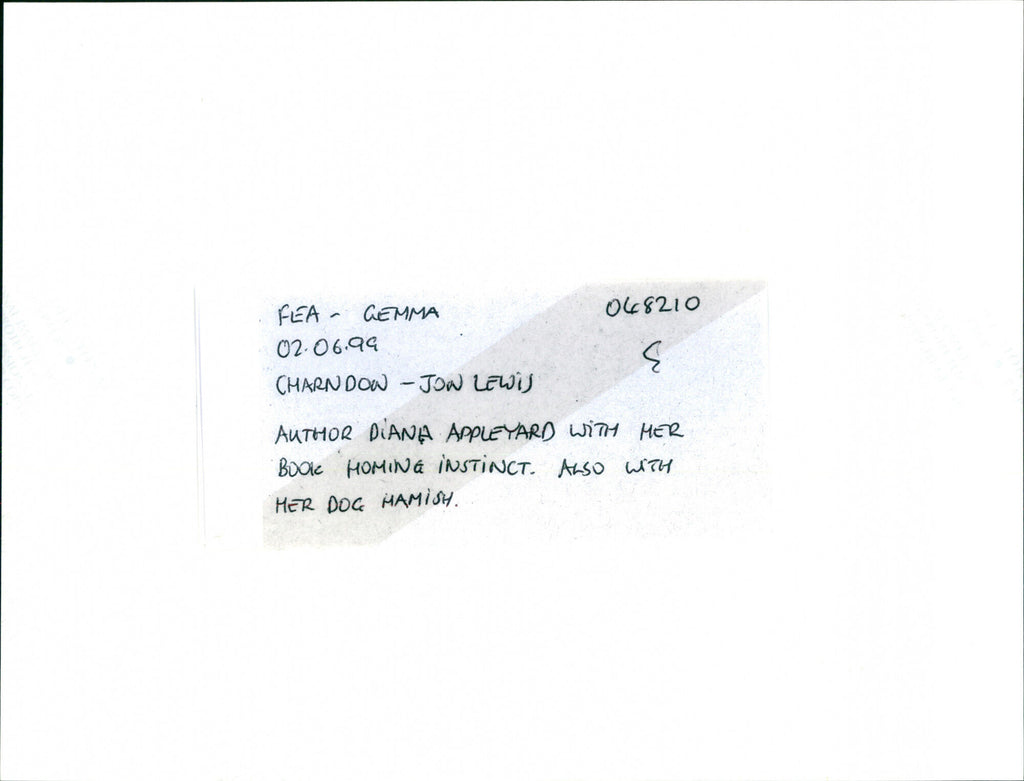 FEA - GEMMA 048210
02.06.99
CHARNDON - JON LEWIS
AUTHOR DIANA APPLEYARD WITH HER
BOOK HOMING INSTINCT. ALSO WITH
HER DOG HAMISH.